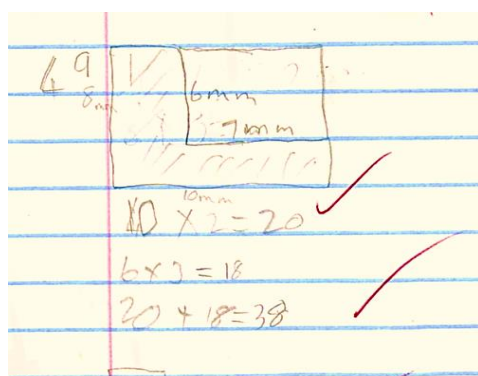 4 a
8mm
6mm
7mm
10mm
10 × 2 = 20
6 × 3 = 18
20 + 18 = 38